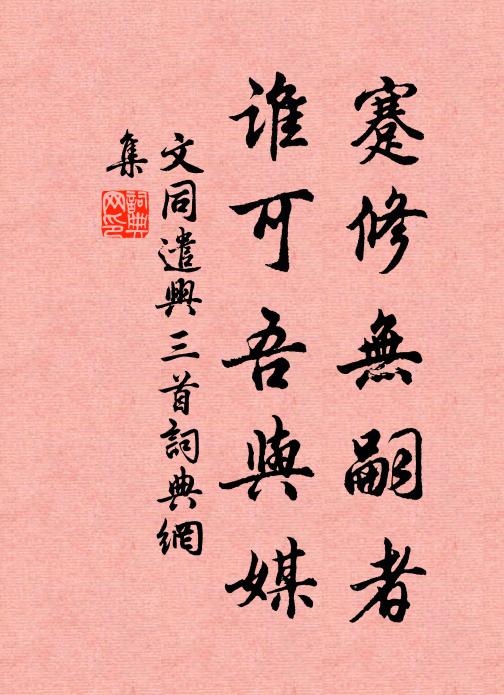 蹇修無嗣者
誰可吾與媒
文同遣興三首詞典網
集
詞典
网印